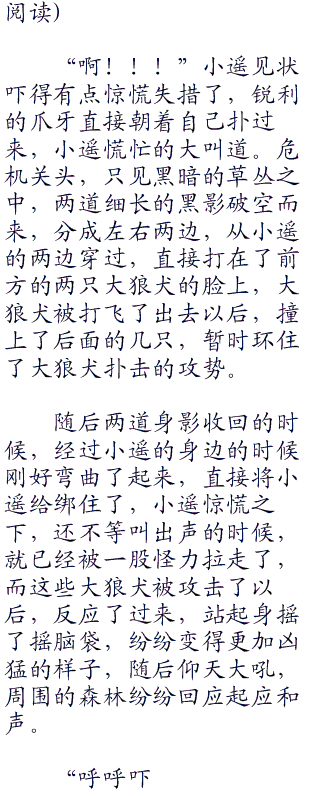 阅读)
“啊！！！”小遥见状
吓得有点惊慌失措了，锐利
的爪牙直接朝着自己扑过
来，小遥慌忙的大叫道。危
机关头，只见黑暗的草丛之
中，两道细长的黑影破空而
来，分成左右两边，从小遥
的两边穿过，直接打在了前
方的两只大狼犬的脸上，大
狼犬被打飞了出去以后，撞
上了后面的几只，暂时环住
了大狼犬扑击的攻势。
随后两道身影收回的时
候，经过小遥的身边的时候
刚好弯曲了起来，直接将小
遥给绑住了，小遥惊慌之
下，还不等叫出声的时候，
就已经被一股怪力拉走了，
而这些大狼犬被攻击了以
后，反应了过来，站起身摇
了摇脑袋，纷纷变得更加凶
猛的样子，随后仰天大吼，
周围的森林纷纷回应起应和
声。
“呼呼吓